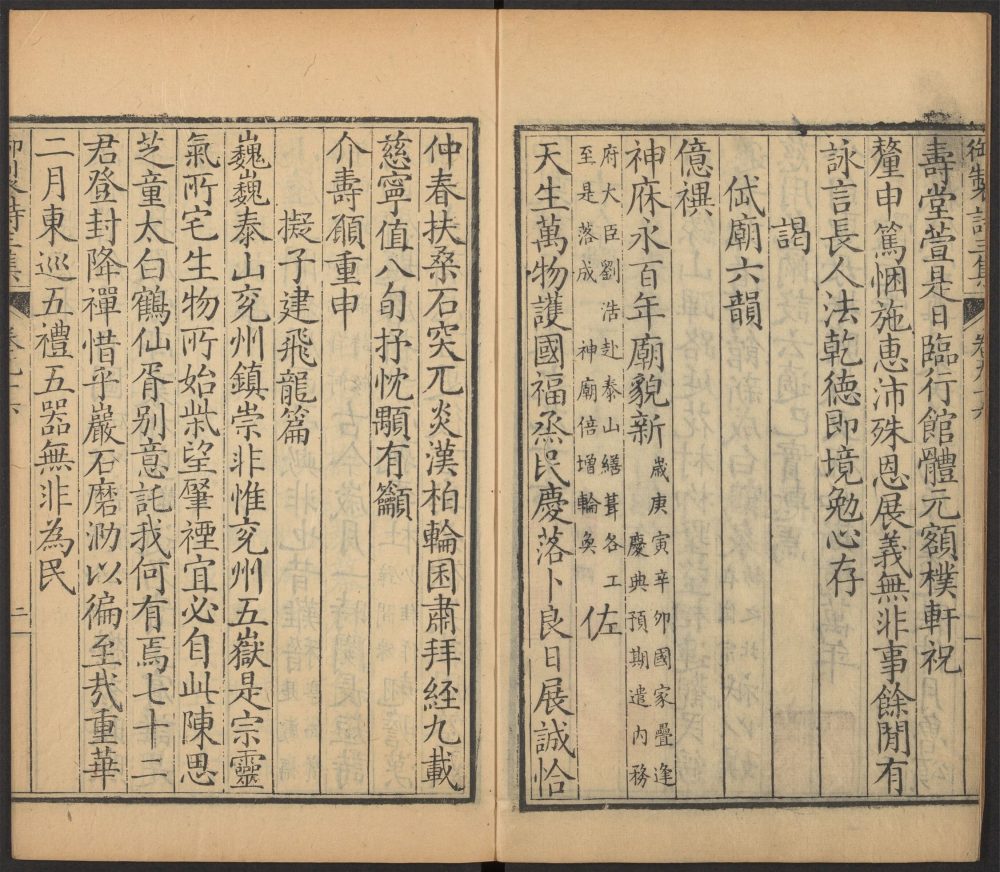 御製詩三集 卷九十六 一
壽堂萱是日臨行館體元額樸軒祝
釐申篤悃施惠沛殊恩展義無非事餘閒有
詠言長人法乾德即境勉心存
謁
岱廟六韻
億禩
神庥永百年廟貌新歲庚寅辛卯國家疊逢慶典預期遣內務
府大臣劉浩赴泰山繕葺各工至是落成 神廟倍增輪奐佐
天生萬物護國福烝民慶落卜良日展誠恰
仲春扶桑石突兀炎漢柏輪囷肅拜経九載
慈寧值八旬抒忱顒有籲
介壽願重申
擬子建飛龍篇
巍巍泰山兖州鎮崇非惟兖州五嶽是宗靈
氣所宅生物所始祡望肇禋宜必自此陳思
芝童太白鶴仙胥别意託我何有焉七十二
君登封降禪惜乎巖石磨泐以徧至哉重華
二月東巡五禮五器無非為民
御製詩三集 卷九十六 二